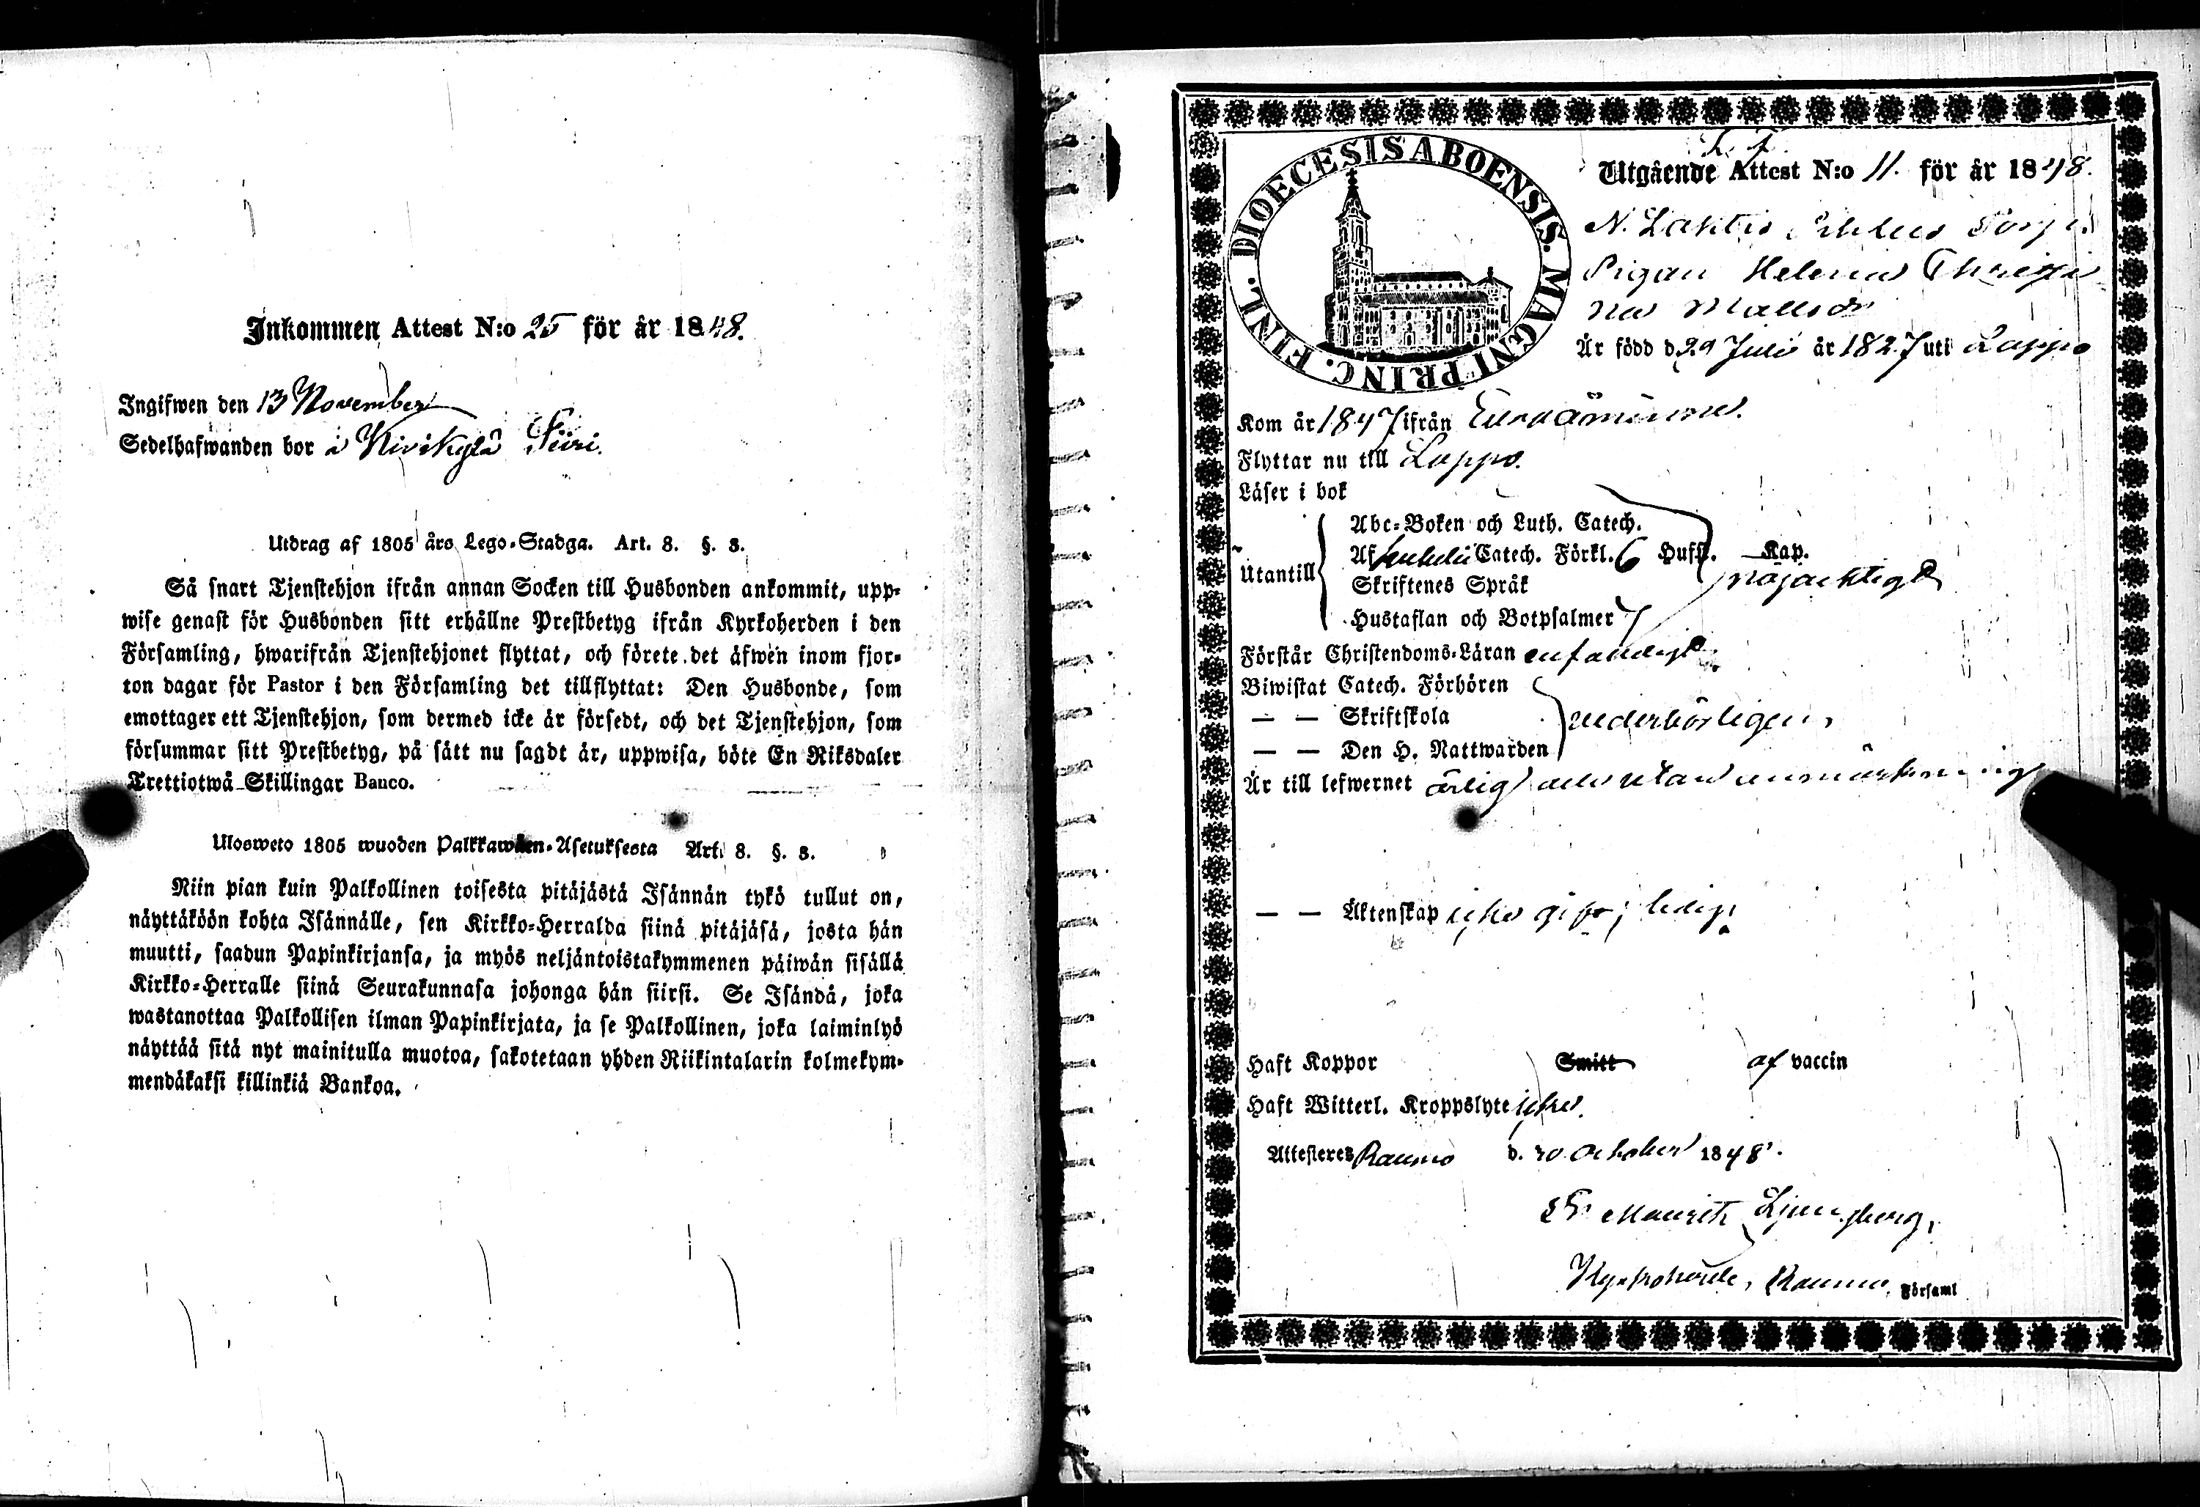 Inkommen Attest N:o 25 för år 1848.
Ingifwen den 13 November
Sedelhafwanden bor i Kivikylä Siiri.
Utdrag af 1805 års Lego-Stadga. Art. 8. §. 3.
Så snart Tjenstehjon ifrån annan Socken till Husbonden ankommit, upp-
wise genast för Husbonden sitt erhållne Prestbetyg ifrån Kyrkoherden i den
Församling, hwarifrån Tjenstehjonet flyttat, och förete det äfwen inom fjor-
ton dagar för Pastor i den Församling det tillflyttat: Den Husbonde, som
emottager ett Tjenstehjon, som dermed icke är försedt, och det Tjenstehjon, som
försummar sitt Prestbetyg, på sätt nu sagdt är, uppwisa, böte En Riksdaler
Trettiotwå Skillingar Banco.
Ulosweto 1805 wuoden Palkkawäen-Asetuksesta Art. 8. §. 3.
Niin pian kuin Palkollinen toisesta pitäjästä Isännän tykö tullut on,
näyttäköön kohta Isännälle, sen Kirkko-Herralda siinä pitäjäsä, josta hän
muutti, saadun Papinkirjansa, ja myös neljäntoistakymmenen päiwän sisällä
Kirkko-Herralle siinä Seurakunnasa johonga hän siirsi. Se Isändä, joka
wastanottaa Palkollisen ilman Papinkirjata, ja se Palkollinen, joka laiminlyö
näyttää sitä nyt mainitulla muotoa, sakotetaan yhden Riikintalarin kolmekym-
mendäkaksi killinkiä Bankoa.
DIOECESIS ABOENSIS. MAGNI PRINC. FINL.
Utgående Attest N:o 11. för år 1848.
N. Lahtis
Pigan Helena Christi
na Matlsdr
Är född d. 29 Juli år 1827 uti Lappo
Kom år 1847 ifrån Euraåminne.
Flyttar nu till Lappo.
Läser i bok
Abc-Boken och Luth. Catech.
Utantill Af Catech. Förkl. 6 Hufst. Kap.
Skriftenes Språk nöjaktigt
Hustaflan och Botpsalmer 7
Förstår Christendoms-Läran enfaldigt.
Biwistat Catech. Förhören
— — Skriftskola vederbörligen,
— — Den H. Nattwarden
Är till lefwernet ärlig och utan anmärkning
— — Äktenskap icke gift; ledig.
Haft Koppor Smitt af vaccin
Haft Witterl. Kroppslyte icke.
Attesteres Raumo d. 30 October 1848.
Mauritz Ljungberg,
Kyrkoherde, Raumo. Församl